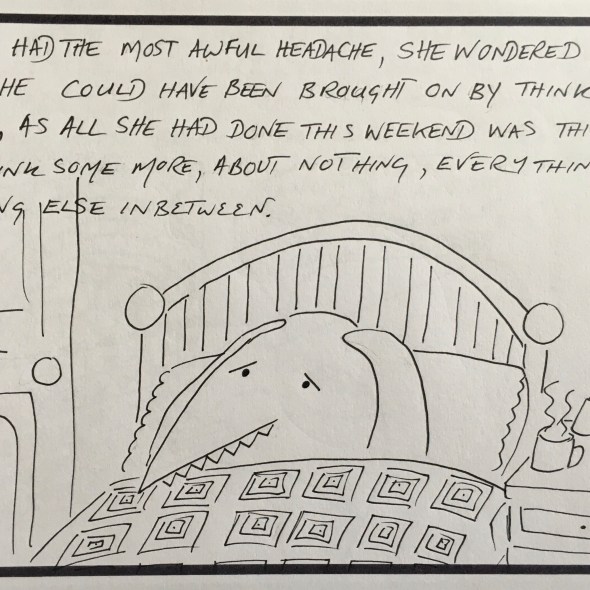 HAD THE MOST AWFUL HEADACHE, SHE WONDERED
HE COULD HAVE BEEN BROUGHT ON BY THINK
, AS ALL SHE HAD DONE THIS WEEKEND WAS THI
NK SOME MORE, ABOUT NOTHING, EVERYTHIN
G ELSE INBETWEEN.